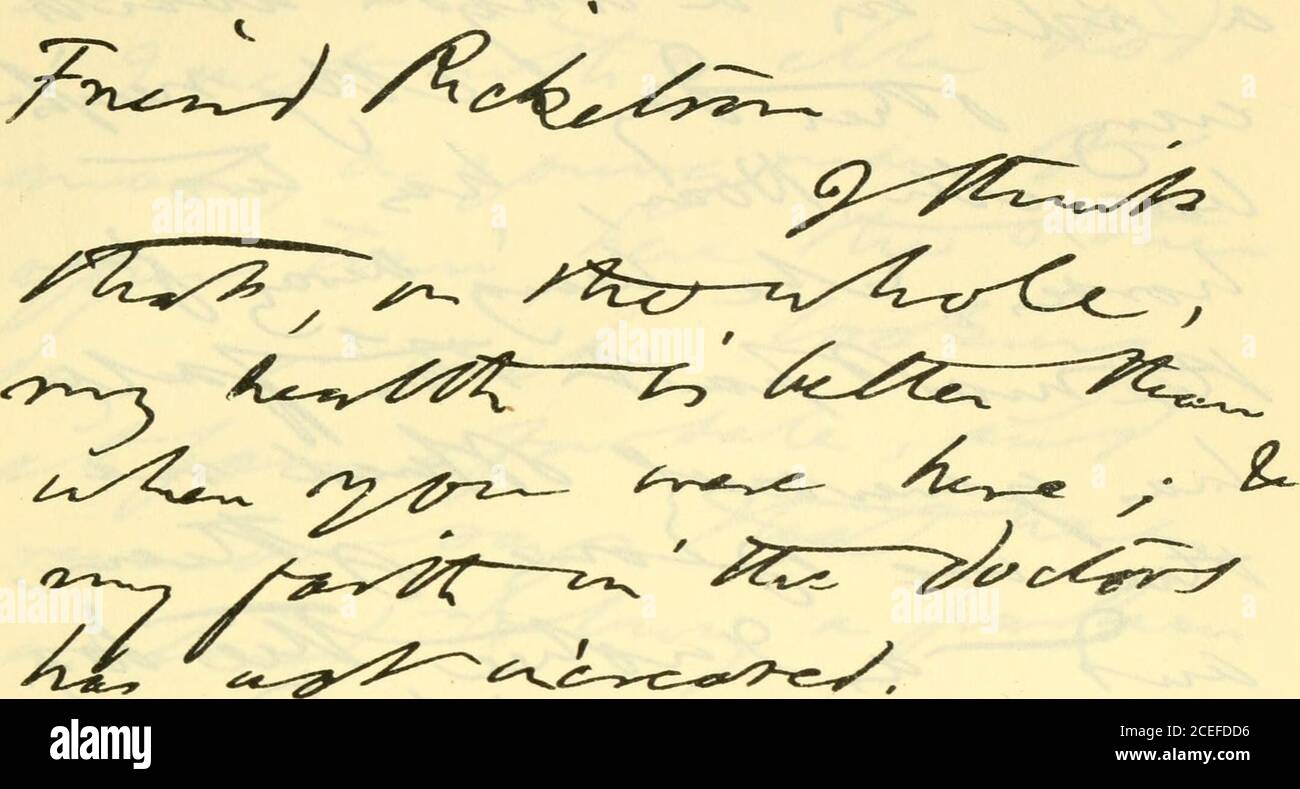 Friend Ricketson
I think
that, on the whole,
my health is better than
when you were here; &
my faith in the doctors
has not increased.
alamy
Image ID: 2CEEFDD6
www.alamy.com